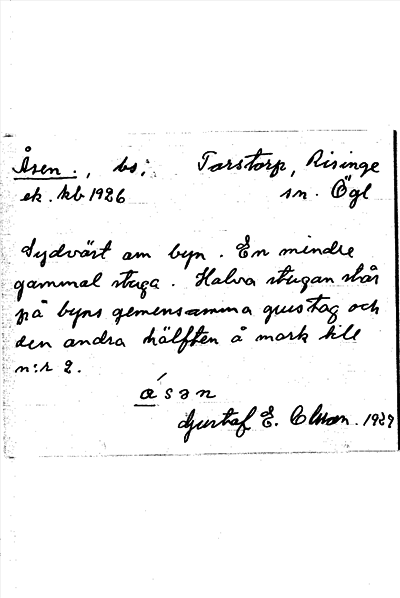 Åsen., bs., Torstorp, Risinge
ek. kb 1926 sn. Ögl
Sydväst om byn. En mindre
gammal stuga. Halva stugan står
på byns gemensamma grustag och
den andra hälften å mark till
n:r 2.
åsən
Gustaf E. Olsson. 1929